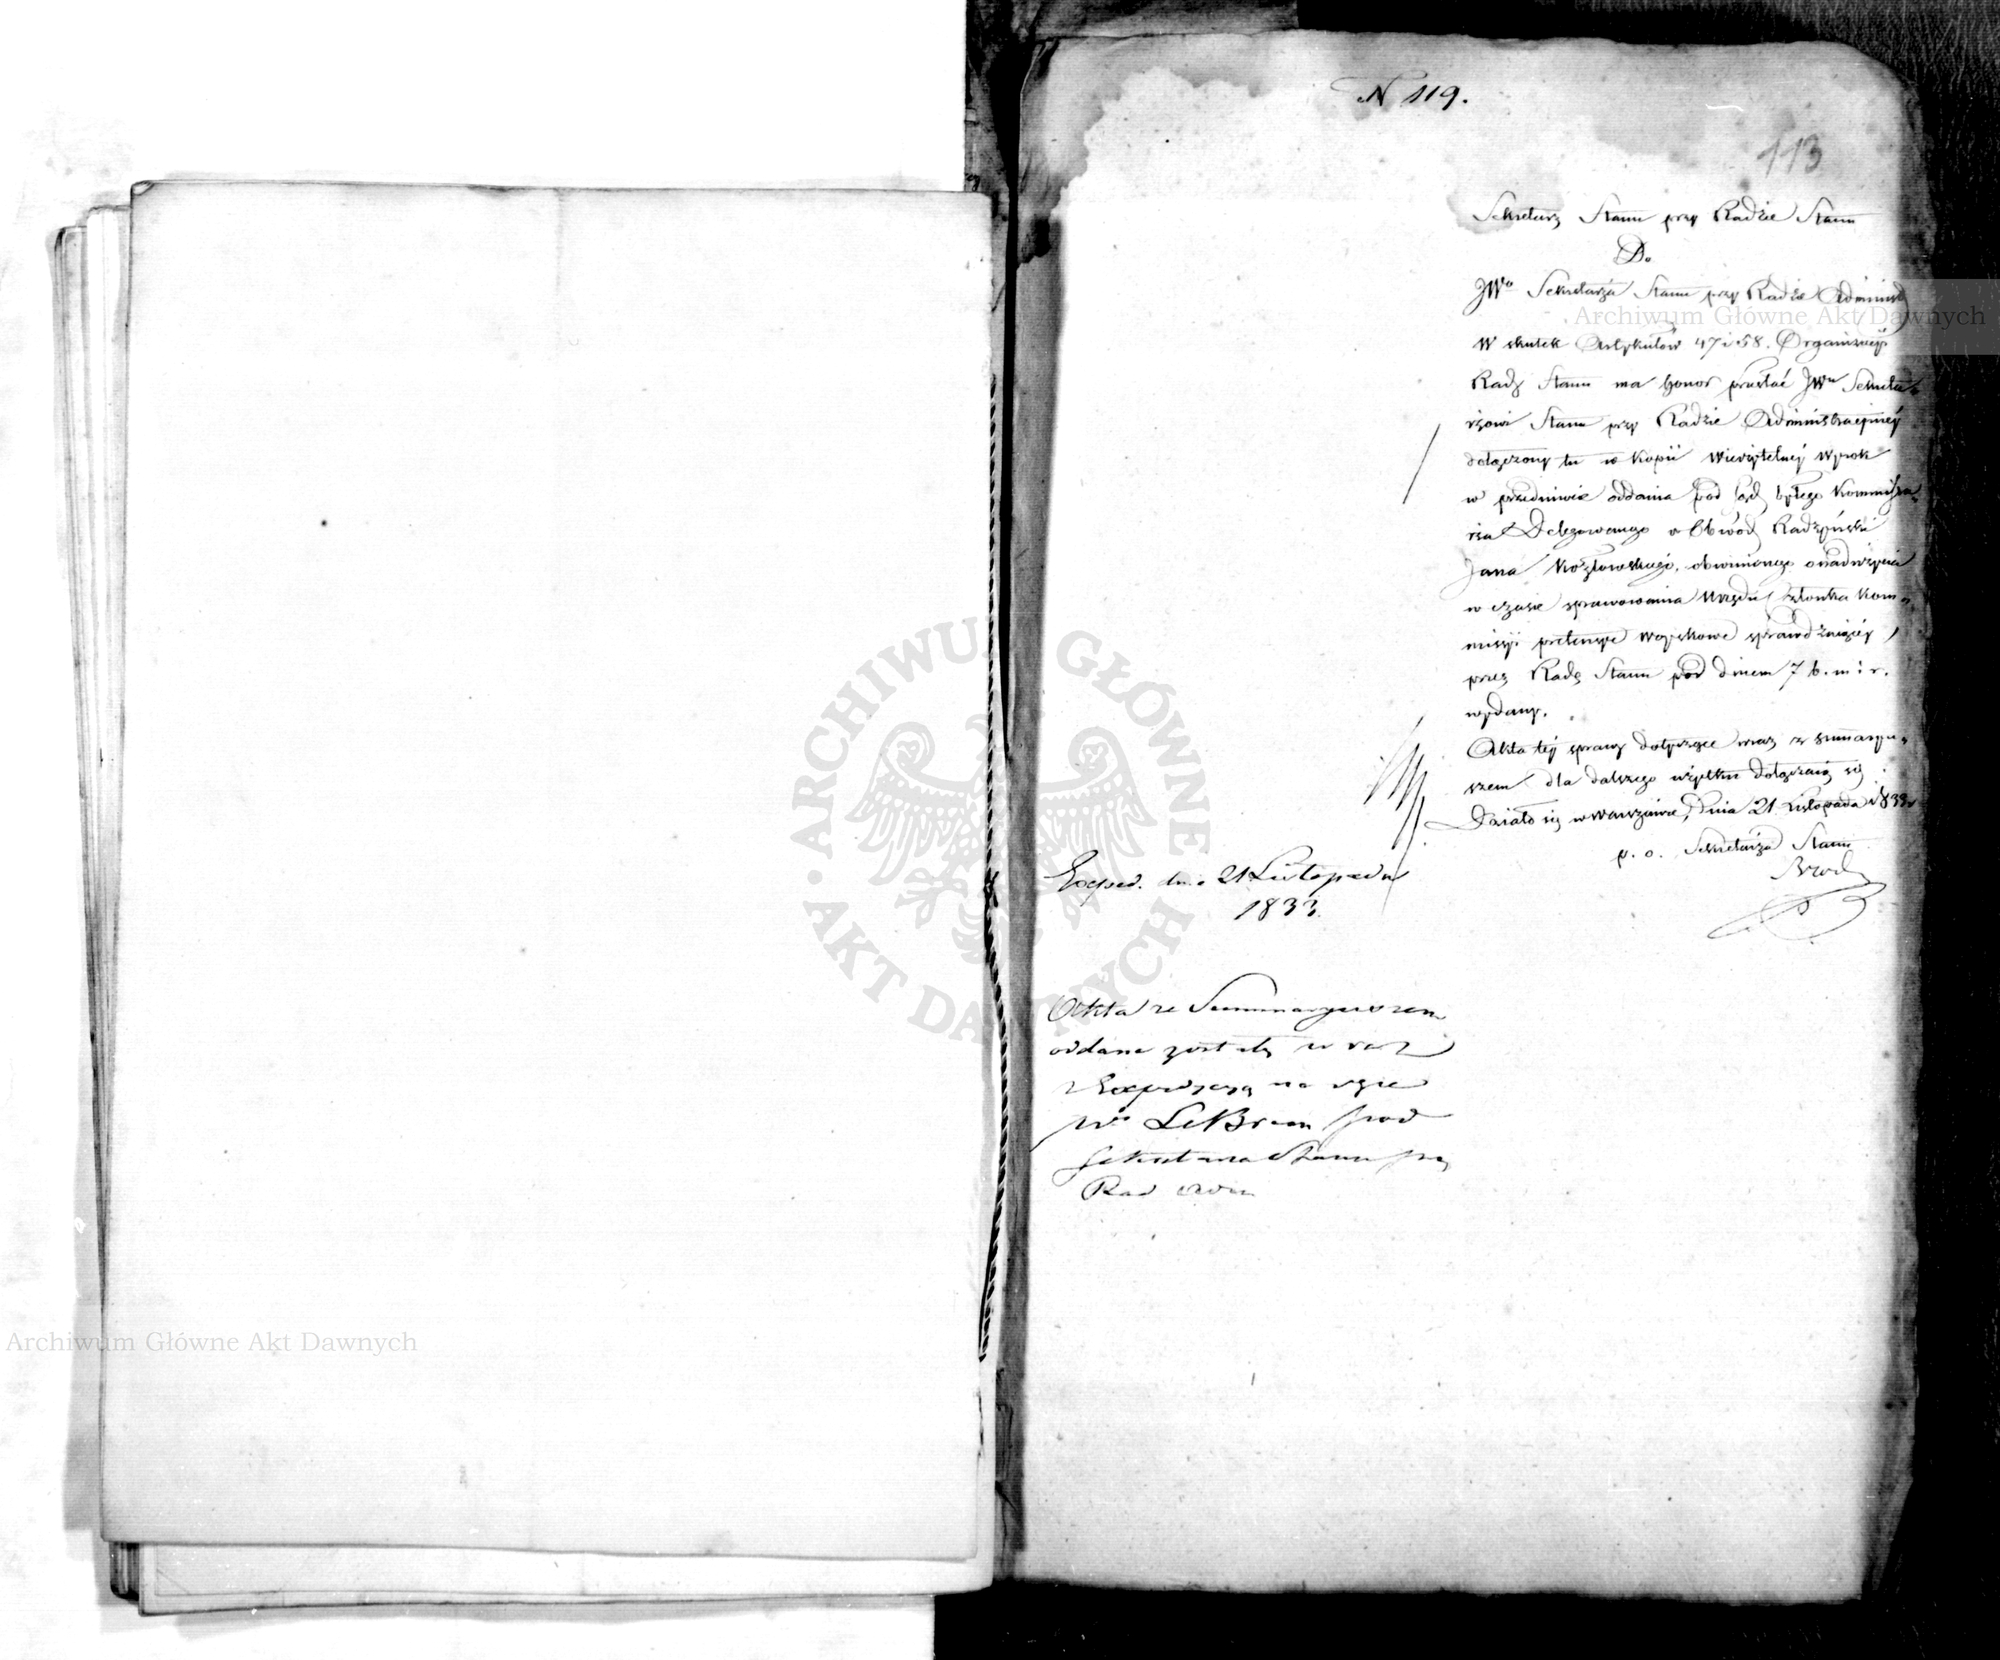 N 119.
113
Sekretarz Stanu przy Radzie Stanu
Do
JWo Sekretarza Stanu przy Radzie Administ
W skutek Artykułów 47 i 58. Organizacyi
Rady Stanu ma honor przesłać JWu Sekreta-
rzowi Stanu przy Radzie Administracyiney
dołączony tu w kopii wierzytelney wyrok
w przedmiocie oddania pod sąd byłego Kommissa-
rza Delegowanego w Obwód Radzyński
Jana Kozłowskiego, obwinionego o nadużycia
w czasie sprawowania Urzędu Członka Kom-
missyi pretensye woyskowe sprawdzaiącéy,
przez Radę Stanu pod dniem 7 b. m: i r.
wydany.
Akta téy sprawy dotyczące wraz z summaryu-
szem dla dalszego użytku dołączaią się
Działo się w Warszawie, Dnia 21 Listopada 1833 r
p. o. Sekretarza Stanu
Exped. dnia 21 Listopada
1833.
Akta ze Summaryuszem
oddane zostały wraz
z Expedycyą na ręce
Wo LeBrun pod
Sekretarza Stanu przy
Rad Adm
Archiwum Główne Akt Dawnych
ARCHIWUM GŁÓWNE AKT DAWNYCH
Archiwum Główne Akt Dawnych